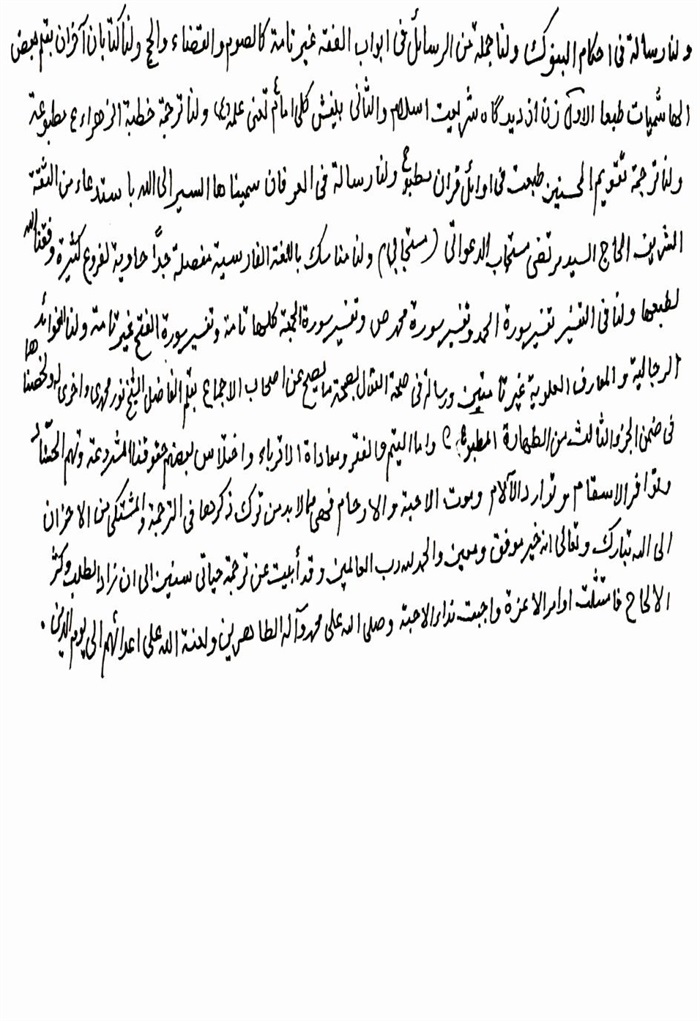 ولنا رسالة فی احکام البنوک ولنا جملة من الرسائل فی ابواب الفقه غیر تامة کالصوم والقضاء والحج ولنا کتابان آخران بقلم بعض
الهاشمیات طبعا الاول زن از دیدگاه شریعت اسلام والثانی بینش کلی امام ولنا ترجمة خطبة الزهراء ع مطبوعة
ولنا ترجمة تقویم المحسنین طبعت فی اوائل قرآن مطبوع ولنا رسالة فی العرفان سمیناها السیر الی الله باستدعاء من الثقة
الشریف الحاج السید مرتضی مستجاب الدعواتی (مستجابی) ولنا مناسک باللغة الفارسیة مفصلة جداً حاویة لفروع کثیرة وفقنا الله
لطبعها ولنا فی التفسیر تفسیر سورة الحمد وتفسیر سورة محمد ص وتفسیر سورة الجمعة کلها تامة وتفسیر سورة الفتح غیر تامة ولنا الفوائد
الرجالیة والمعارف العلویة غیر تامتین ورسالة فی بصحة ما یصح عن اصحاب الاجماع بقلم الفاضل الشیخ نور محمدی واخری له ولخصناها
فی ضمن الجزء الثالث من الطهارة المطبوع واما الیتم والفقر ومعاداة الاقرباء واختلاس بعضهم حقوقنا المشروعة وتهم
وتوافر الاسقام وتوارد الآلام وموت الاحبة والارحام فهی مما لابد من ترک ذکرها فی الترجمة والمشتکی من الاحزان
الی الله تبارک وتعالی انه خیر موفق ومعین والحمد لله رب العالمین وقد أبیت عن ترجمة حیاتی سنین الی ان زاد الطلب وکثر
الالحاح فامتثلت اوامر الاعزة واجبت نداء الاحبة وصلی الله علی محمد وآله الطاهرین ولعنة الله علی اعدائهم الی یوم الدین.